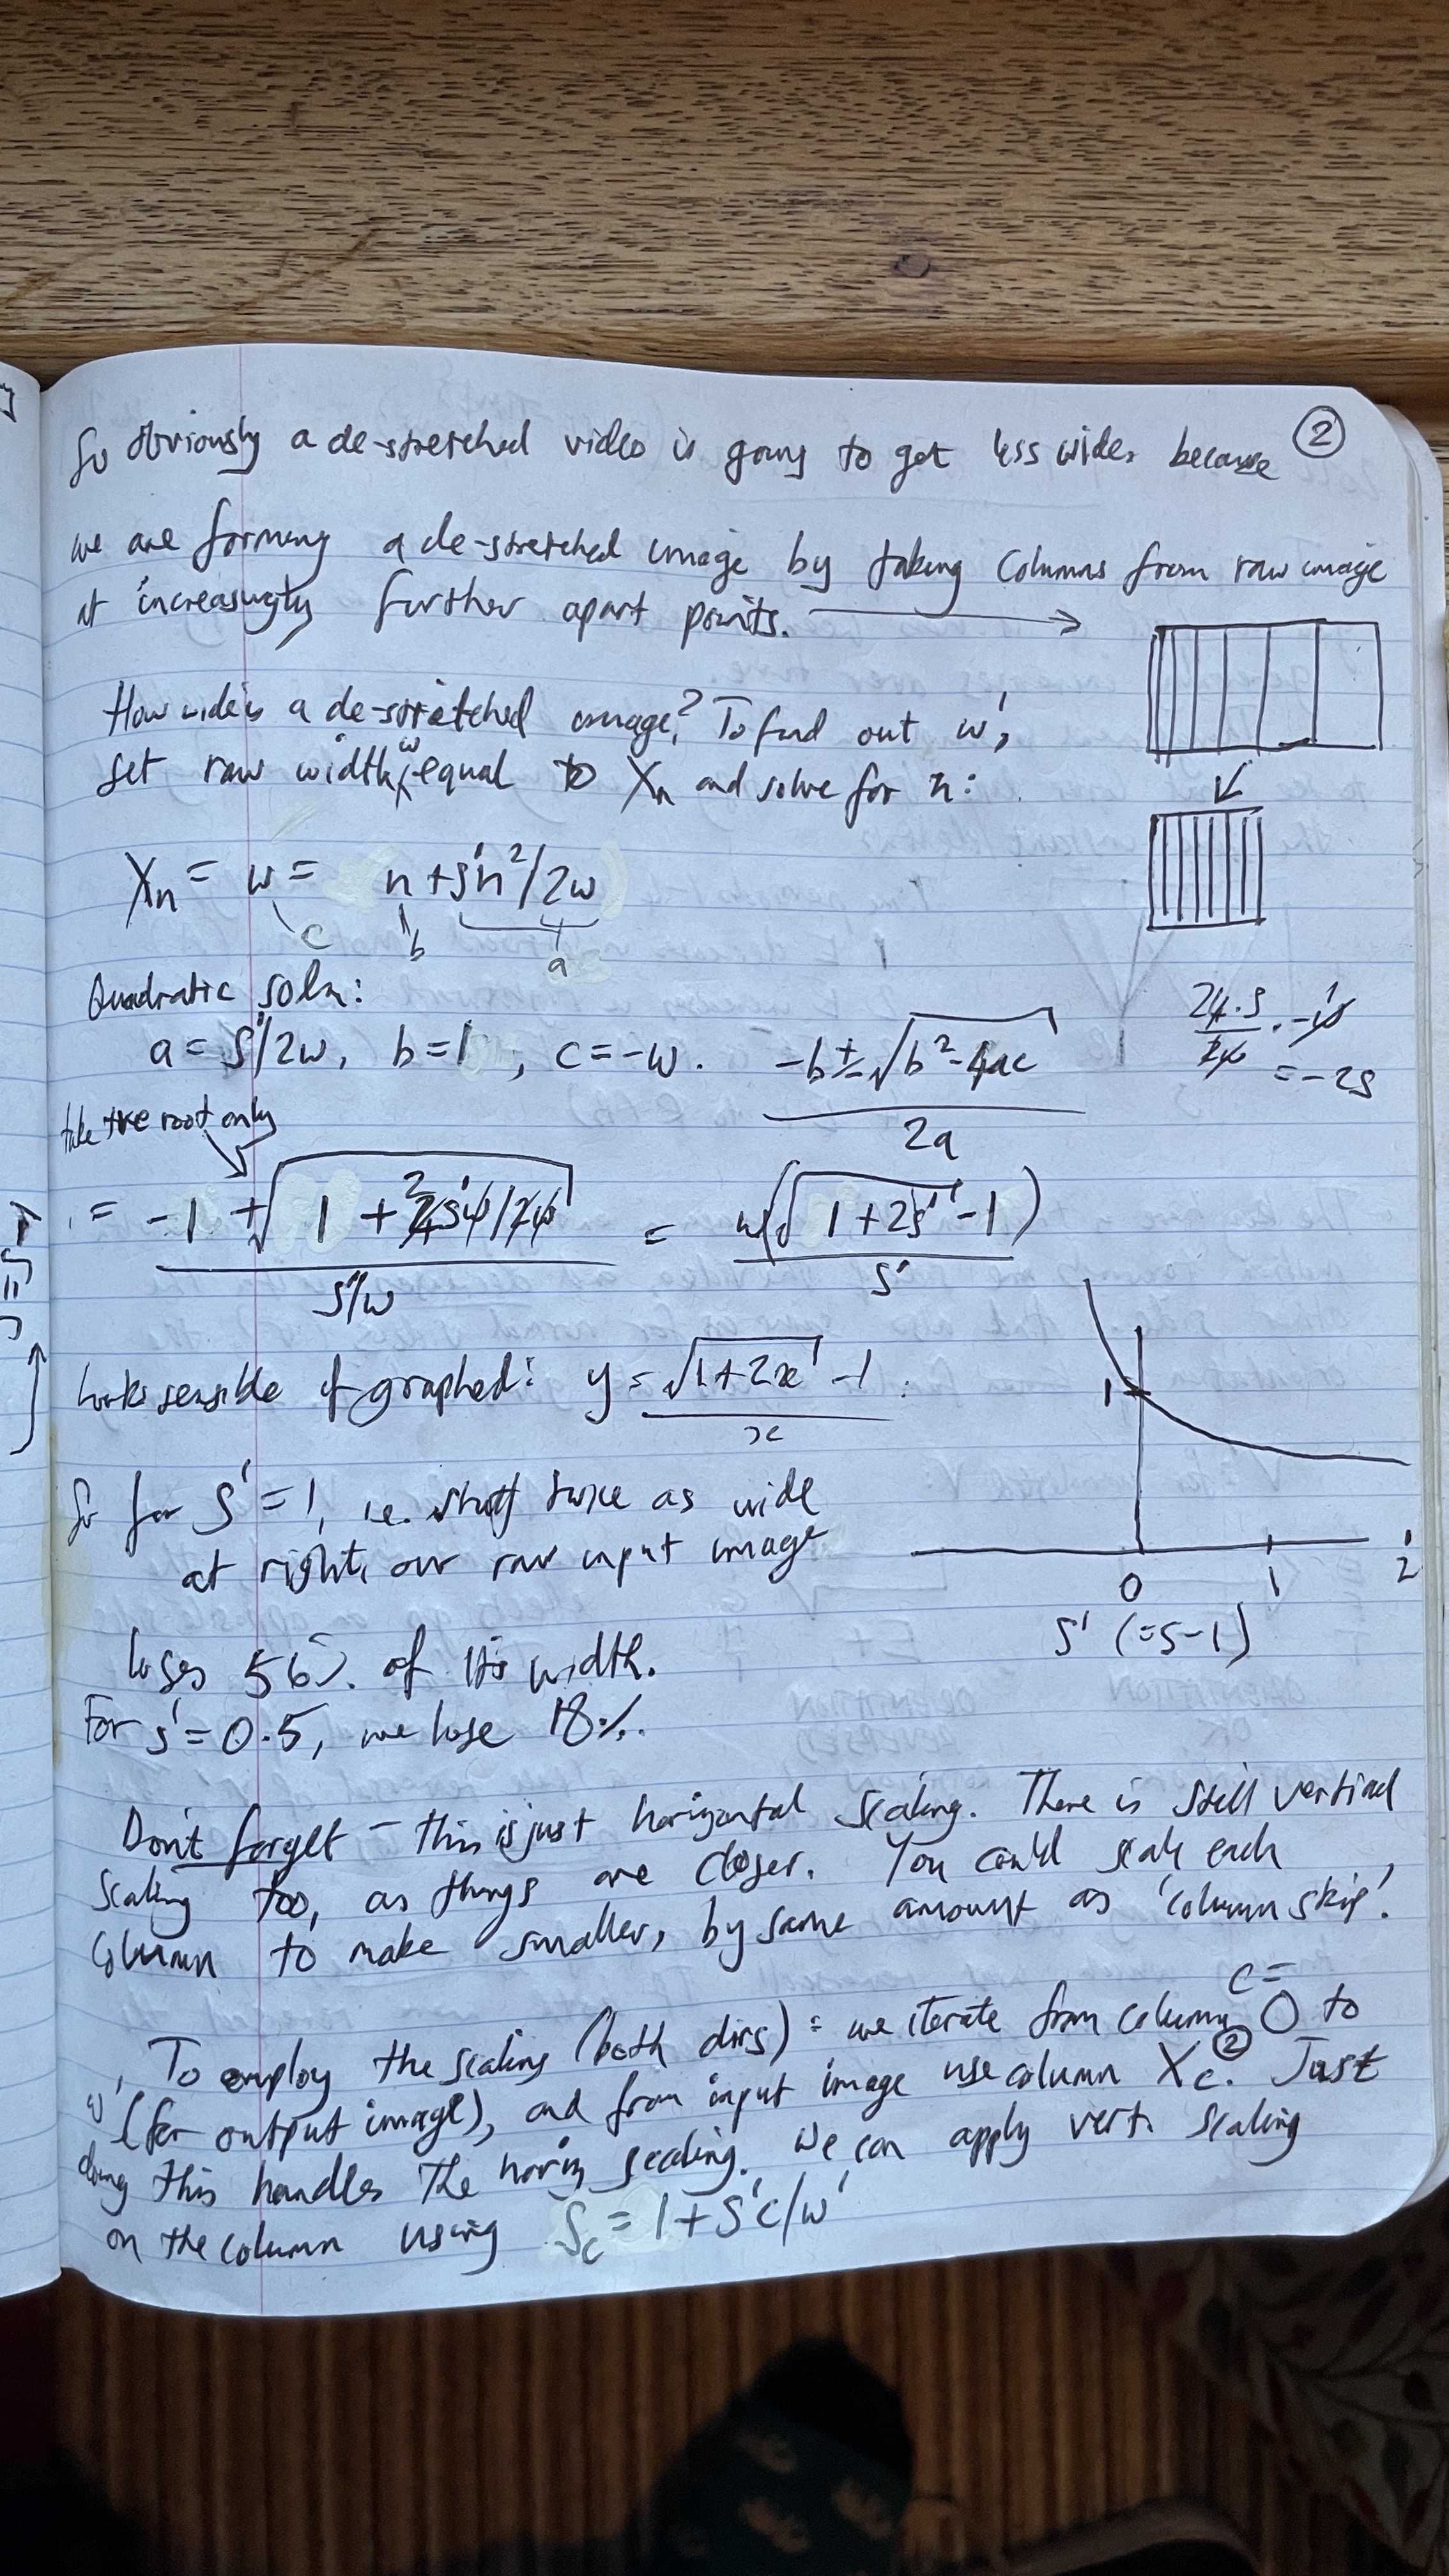 ②
So obviously a de-stretched video is going to get less wide, because
we are forming a de-stretched image by taking columns from raw image
at increasingly further apart points. →
How wide is a de-stretched image? To find out w',
set raw width w equal to Xn and solve for n:
Xn = w = n + s'n²/2w
c b a
Quadratic soln:
a = s'/2w, b = 1, c = -w. (-b ± √(b² - 4ac))/2a
24.s/2w . -w = -2s
take +ve root only
= (-1 + √(1 + 4s'w/2w))/(s'/w) = w(√(1+2s') - 1)/s'
Looks sensible if graphed: y = (√(1+2x) - 1)/x
1
0 1 2
s' (=s-1)
So for s' = 1, i.e. stuff twice as wide
at right, our raw input image
loses 56% of its width.
For s' = 0.5, we lose 18%.
Don't forget – this is just horizontal scaling. There is still vertical
scaling too, as things are closer. You could scale each
column to make smaller, by same amount as 'column skip'.
To employ the scaling (both dirs): we iterate from column c = 0 to
w' (for output image), and from input image use column Xc.② Just
doing this handles the horiz scaling. We can apply vert. scaling
on the column using Sc = 1 + s'c/w'